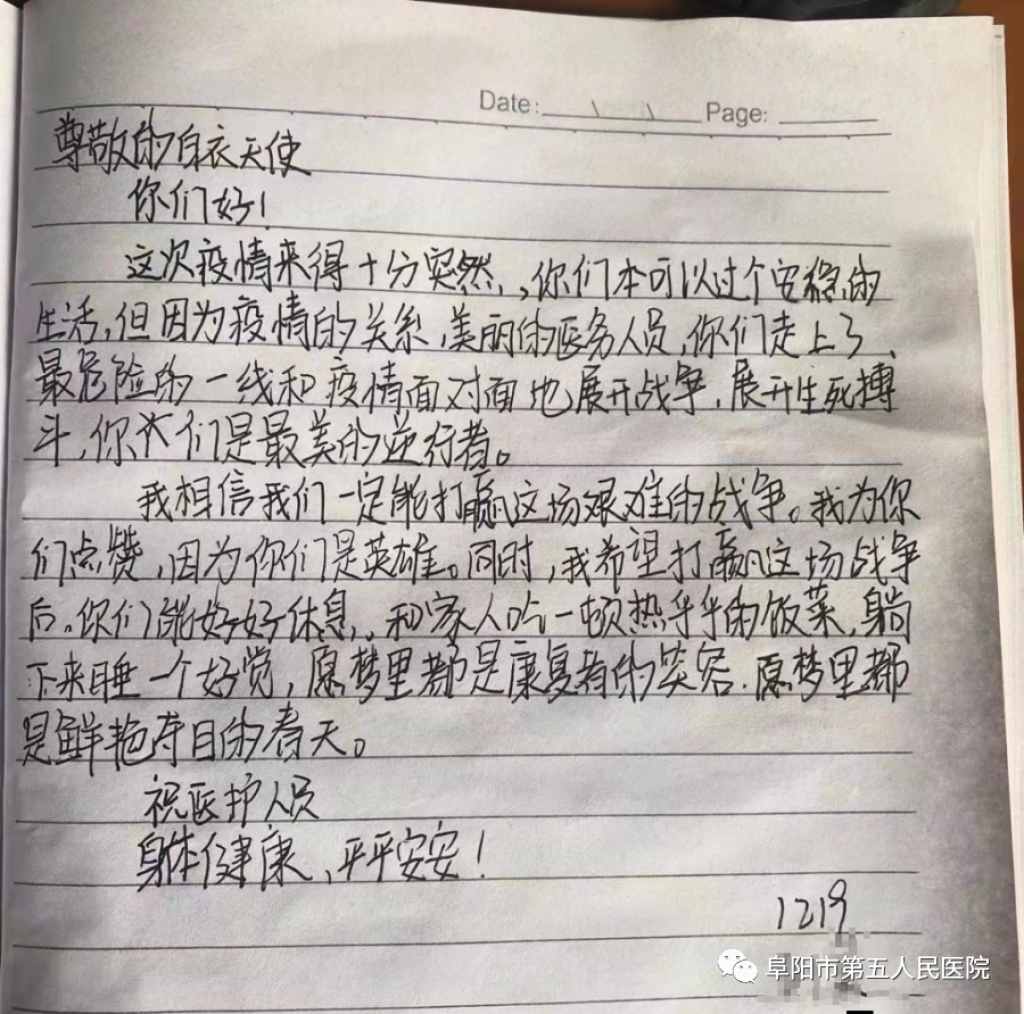 Date: \ \ Page:
尊敬的白衣天使
你们好!
这次疫情来得十分突然,,你们本可以过个安稳的
生活,但因为疫情的关系,美丽的医务人员,你们走上了、
最危险的一线和疫情面对面地展开战争,展开生死搏
斗,你们是最美的逆行者。
我相信我们一定能打赢这场艰难的战争。我为你
们点赞,因为你们是英雄。同时,我希望打赢这场战争
后,你们能好好休息,,和家人吃一顿热乎乎的饭菜,躺
下来睡一个好觉,愿梦里都是康复者的笑容,愿梦里都
是鲜艳夺目的春天。
祝医护人员
身体健康,平平安安!
1219
阜阳市第五人民医院